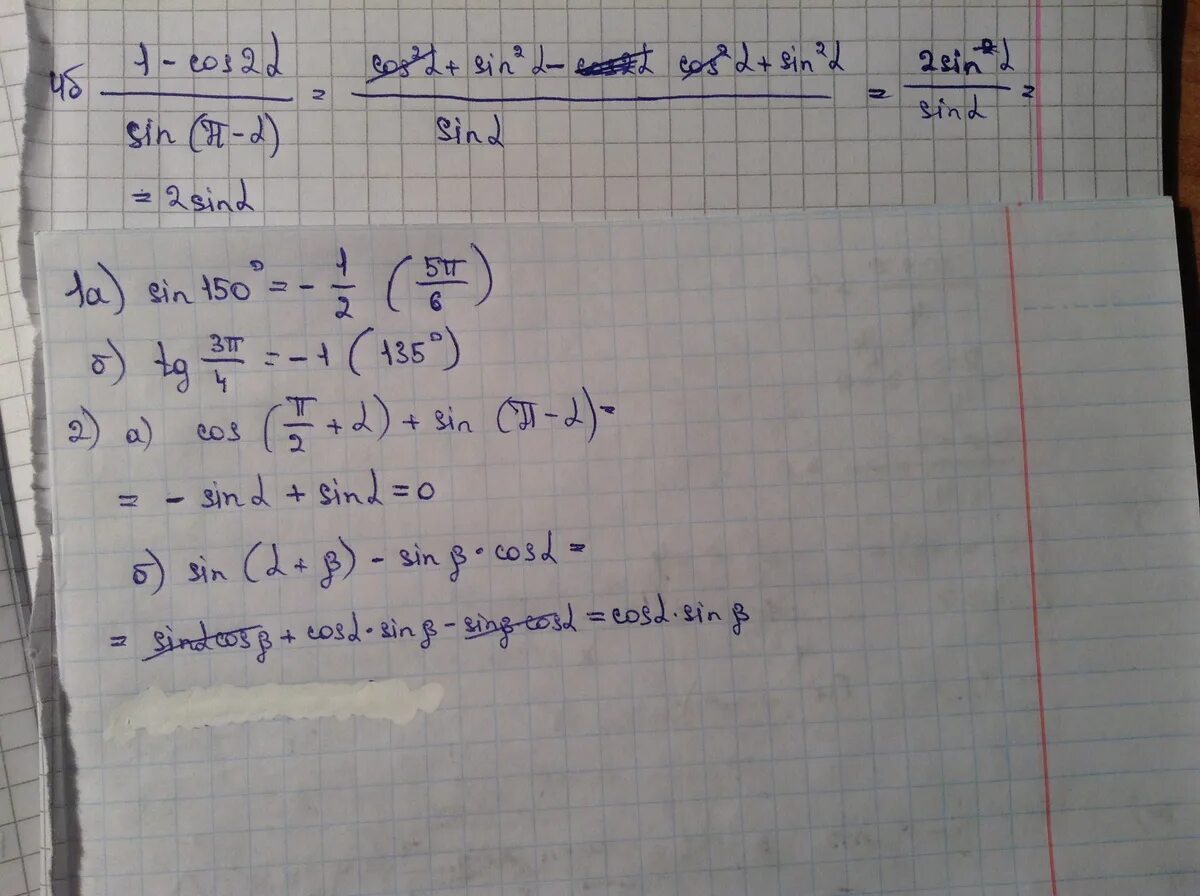 4б (1 - cos2α)/(sin(π - α)) = (cos²α + sin²α - cos²α + sin²α)/(sinα) = (2sin²α)/(sinα) =
= 2sinα
1а) sin 150° = - 1/2 (5π/6)
б) tg 3π/4 = - 1 (135°)
2) а) cos (π/2 + α) + sin (π - α) =
= - sinα + sinα = 0
б) sin (α + β) - sin β · cosα =
= sinαcosβ + cosα · sin β - sinβ cosα = cosα · sin β